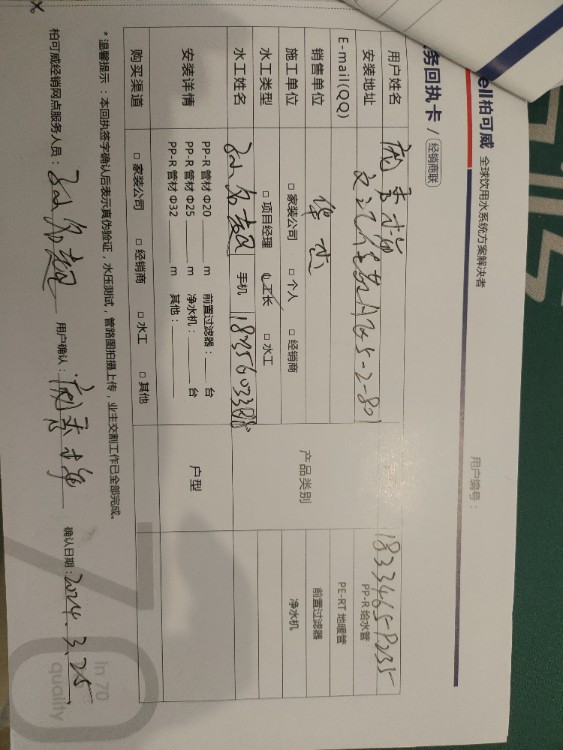 ell柏可威 全球饮用水系统方案解决者
务回执卡 / 经销商联
用户编号：
用户姓名
安装地址 A7#5-2-801
E-mail(QQ)
销售单位
施工单位 □ 家装公司 □ 个人 □ 经销商
水工类型 □ 项目经理 工长 □ 水工
水工姓名 孙名超 手机
安装详情 PP-R 管材 Φ20 m 前置过滤器： 台
PP-R 管材 Φ25 m 净水机： 台
PP-R 管材 Φ32 m 其他：
购买渠道 □ 家装公司 □ 经销商 □ 水工 □ 其他
产品类别
PP-R 给水管
PE-RT 地暖管
前置过滤器
净水机
户型
* 温馨提示：本回执签字确认后表示真伪验证，水压测试，管路图拍摄上传，业主交割工作已全部完成。
柏可威经销网点服务人员：孙名超 用户确认： 确认日期：2024.3.25
In 70
quality